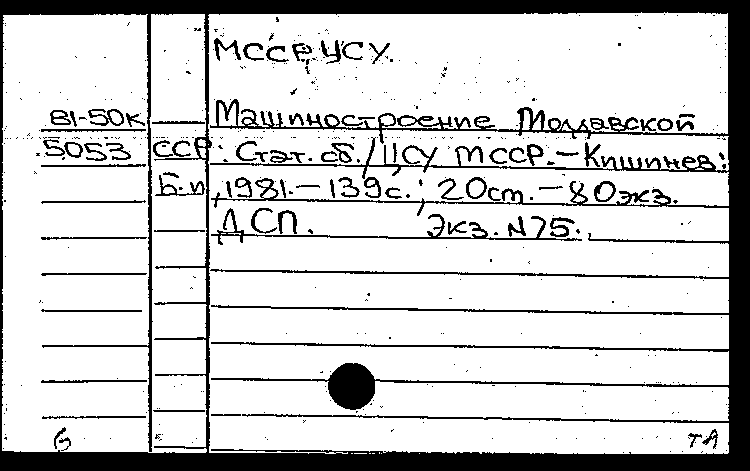 МССР. ЦСУ.
81-50к Машиностроение Молдавской
5053 ССР: Стат. сб./ЦСУ МССР.-Кишинев:
Б.и.,1981.-139с.; 20см.-80экз.
ДСП. Экз. N75.
б ТА